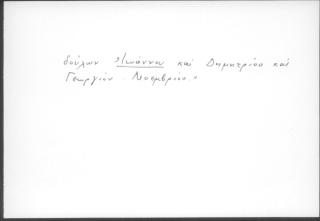 δούλων Ἰωάννου καὶ Δημητρίου καὶ
Γεωργίου. Νοεμβρίου."